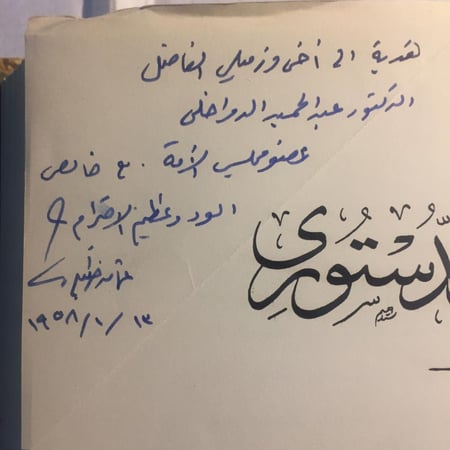 تقدمة الى أخى وزميلي الفاضل
الدكتور عبد الحميد الدواخلى
عضو مجلس الأمة . مع خالص
الود وعظيم الاحترام
عثمان خليل
١٩٥٨/١/١٣
دستورى